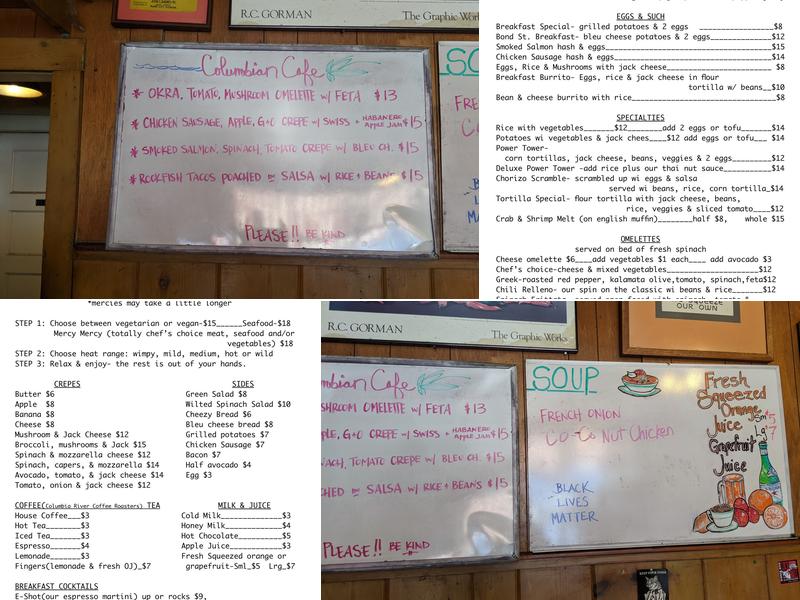 R.C. GORMAN
The Graphic Works
Columbian Cafe
* OKRA, TOMATO, MUSHROOM OMELETTE w/ FETA $13
* CHICKEN SAUSAGE, APPLE, G+O CREPE w/ SWISS + HABANERO APPLE JAM $15
* SMOKED SALMON, SPINACH, TOMATO CREPE w/ BLEU CH. $15
* ROCKFISH TACOS POACHED in SALSA w/ RICE + BEANS $15
PLEASE!! BE KIND
SO
FRE
CO
B
LI
MA
EGGS & SUCH
Breakfast Special- grilled potatoes & 2 eggs _________________$8
Bond St. Breakfast- bleu cheese potatoes & 2 eggs______________$12
Smoked Salmon hash & eggs______________$15
Chicken Sausage hash & eggs______________$14
Eggs, Rice & Mushrooms with jack cheese______________ $8
Breakfast Burrito- Eggs, rice & jack cheese in flour
tortilla w/ beans__$10
Bean & cheese burrito with rice______________$8
SPECIALTIES
Rice with vegetables_______$12________add 2 eggs or tofu_______$14
Potatoes wi vegetables & jack chees____$12 add eggs or tofu___ $14
Power Tower-
corn tortillas, jack cheese, beans, veggies & 2 eggs____________$12
Deluxe Power Tower -add rice plus our thai nut sauce____________$14
Chorizo Scramble- scrambled up wi eggs & salsa
served wi beans, rice, corn tortilla_$14
Tortilla Special- flour tortilla with jack cheese, beans,
rice, veggies & sliced tomato____$12
Crab & Shrimp Melt (on english muffin)________half $8, whole $15
OMELETTES
served on bed of fresh spinach
Cheese omelette $6____add vegetables $1 each____ add avocado $3
Chef's choice-cheese & mixed vegetables______________$12
Greek-roasted red pepper, kalamata olive,tomato, spinach,feta$12
Chili Relleno- our spin on the classic wi beans & rice_______$12
*mercies may take a little longer
STEP 1: Choose between vegetarian or vegan-$15______Seafood-$18
Mercy Mercy (totally chef's choice meat, seafood and/or
vegetables) $18
STEP 2: Choose heat range: wimpy, mild, medium, hot or wild
STEP 3: Relax & enjoy- the rest is out of your hands.
CREPES
Butter $6
Apple $8
Banana $8
Cheese $8
Mushroom & Jack Cheese $12
Broccoli, mushrooms & Jack $15
Spinach & mozzarella cheese $12
Spinach, capers, & mozzarella $14
Avocado, tomato, & jack cheese $14
Tomato, onion & jack cheese $12
SIDES
Green Salad $8
Wilted Spinach Salad $10
Cheezy Bread $6
Bleu cheese bread $8
Grilled potatoes $7
Chicken Sausage $7
Bacon $7
Half avocado $4
Egg $3
COFFEE(Columbia River Coffee Roasters) TEA
House Coffee___$3
Hot Tea________$3
Iced Tea_______$3
Espresso_______$4
Lemonade_______$3
Fingers(lemonade & fresh OJ)_$7
MILK & JUICE
Cold Milk_____________$3
Honey Milk____________$4
Hot Chocolate_________$5
Apple Juice___________$3
Fresh Squeezed orange or
grapefruit-Sml_$5 Lrg_$7
BREAKFAST COCKTAILS
E-Shot(our espresso martini) up or rocks $9,
R.C. GORMAN
The Graphic Works
SQUEEZE
OUR
mbian Cafe
SHROOM OMELETTE w/ FETA $13
PLE, G+O CREPE w/ SWISS + HABANERO APPLE JAM $15
NACH, TOMATO CREPE w/ BLEU CH. $15
CHED in SALSA w/ RICE + BEANS $15
PLEASE!! BE KIND
SOUP
FRENCH ONION
CO-CO Nut Chicken
BLACK
LIVES
MATTER
Fresh
Squeezed
Orange
Juice
Sm $5
Lg $7
Grapefruit
Juice